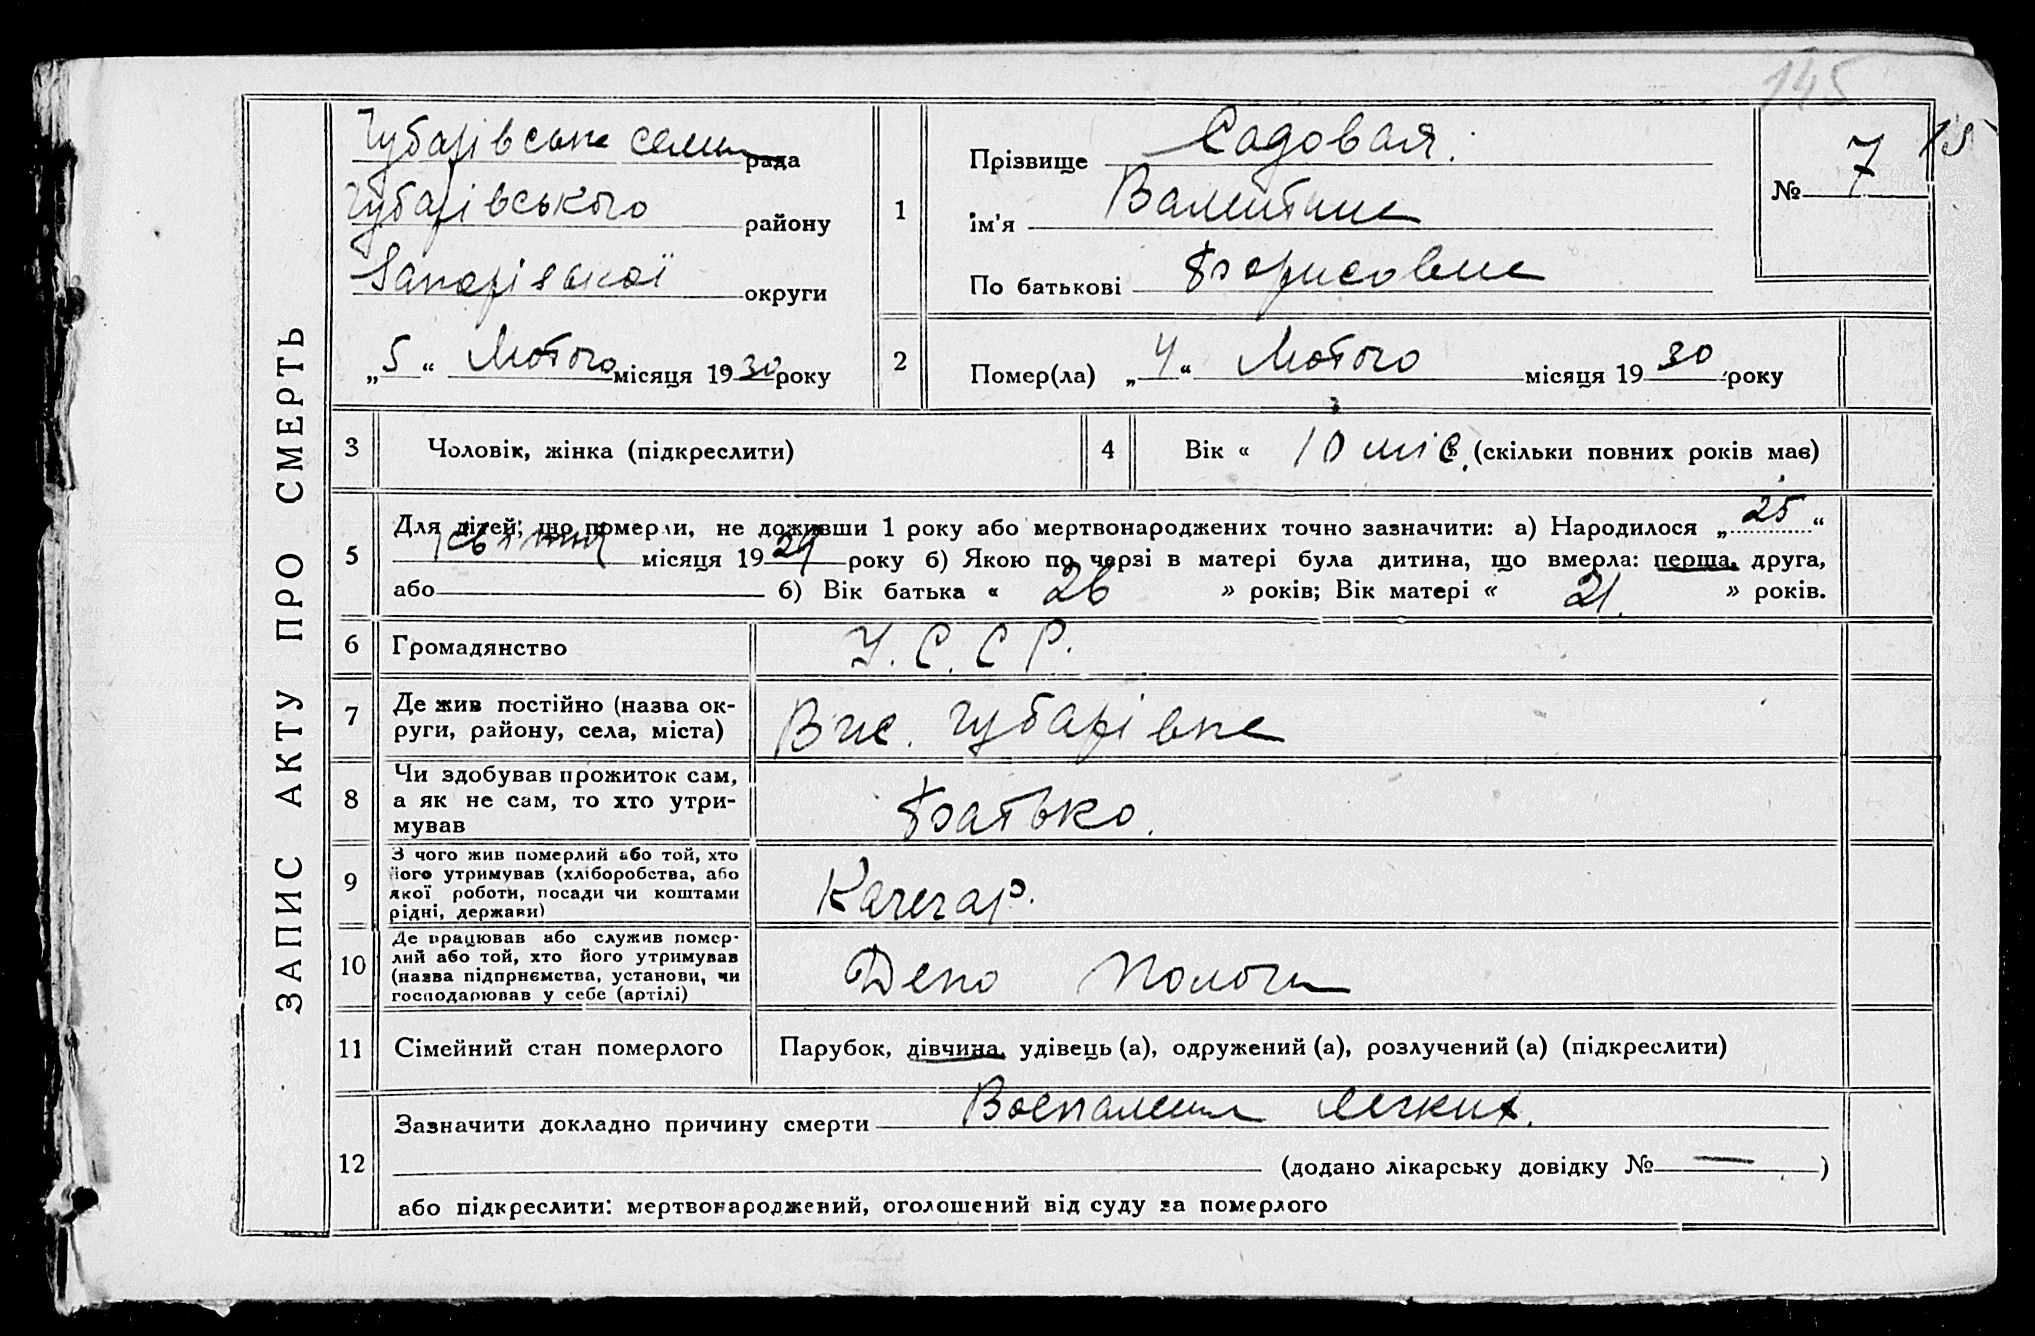 145
ЗАПИС АКТУ ПРО СМЕРТЬ
Губарівська рада
Губарівського району
Запорізської округи
„5“ Лютого місяця 1930 року
1
Прізвище Садовая.
ім'я Валентина
По батькові Борисовна
№ 7
15
2
Помер(ла) „4“ Лютого місяця 1930 року
3
Чоловік, жінка (підкреслити)
4
Вік « 10 міс. (скільки повних років має)
5
Для дітей, що померли, не доживши 1 року або мертвонароджених точно зазначити: а) Народилося „25“
квітня місяця 1929 року б) Якою по черзі в матері була дитина, що вмерла: перша, друга,
або б) Вік батька « 26 » років; Вік матері « 21. » років.
6
Громадянство
У.С.С.Р.
7
Де жив постійно (назва ок-
руги, району, села, міста)
Губарівка
8
Чи здобував прожиток сам,
а як не сам, то хто утри-
мував
Батько.
9
З чого жив померлий або той, хто
його утримував (хліборобства, або
якої роботи, посади чи коштами
рідні, держави)
Качегар.
10
Де працював або служив помер-
лий або той, хто його утримував
(назва підприємства, установи, чи
господарював у себе (артілі)
Депо Пологи
11
Сімейний стан померлого
Парубок, дівчина, удівець (а), одружений (а), розлучений (а) (підкреслити)
12
Зазначити докладно причину смерти Воспаления легких.
(додано лікарську довідку № — )
або підкреслити: мертвонароджений, оголошений від суду за померлого